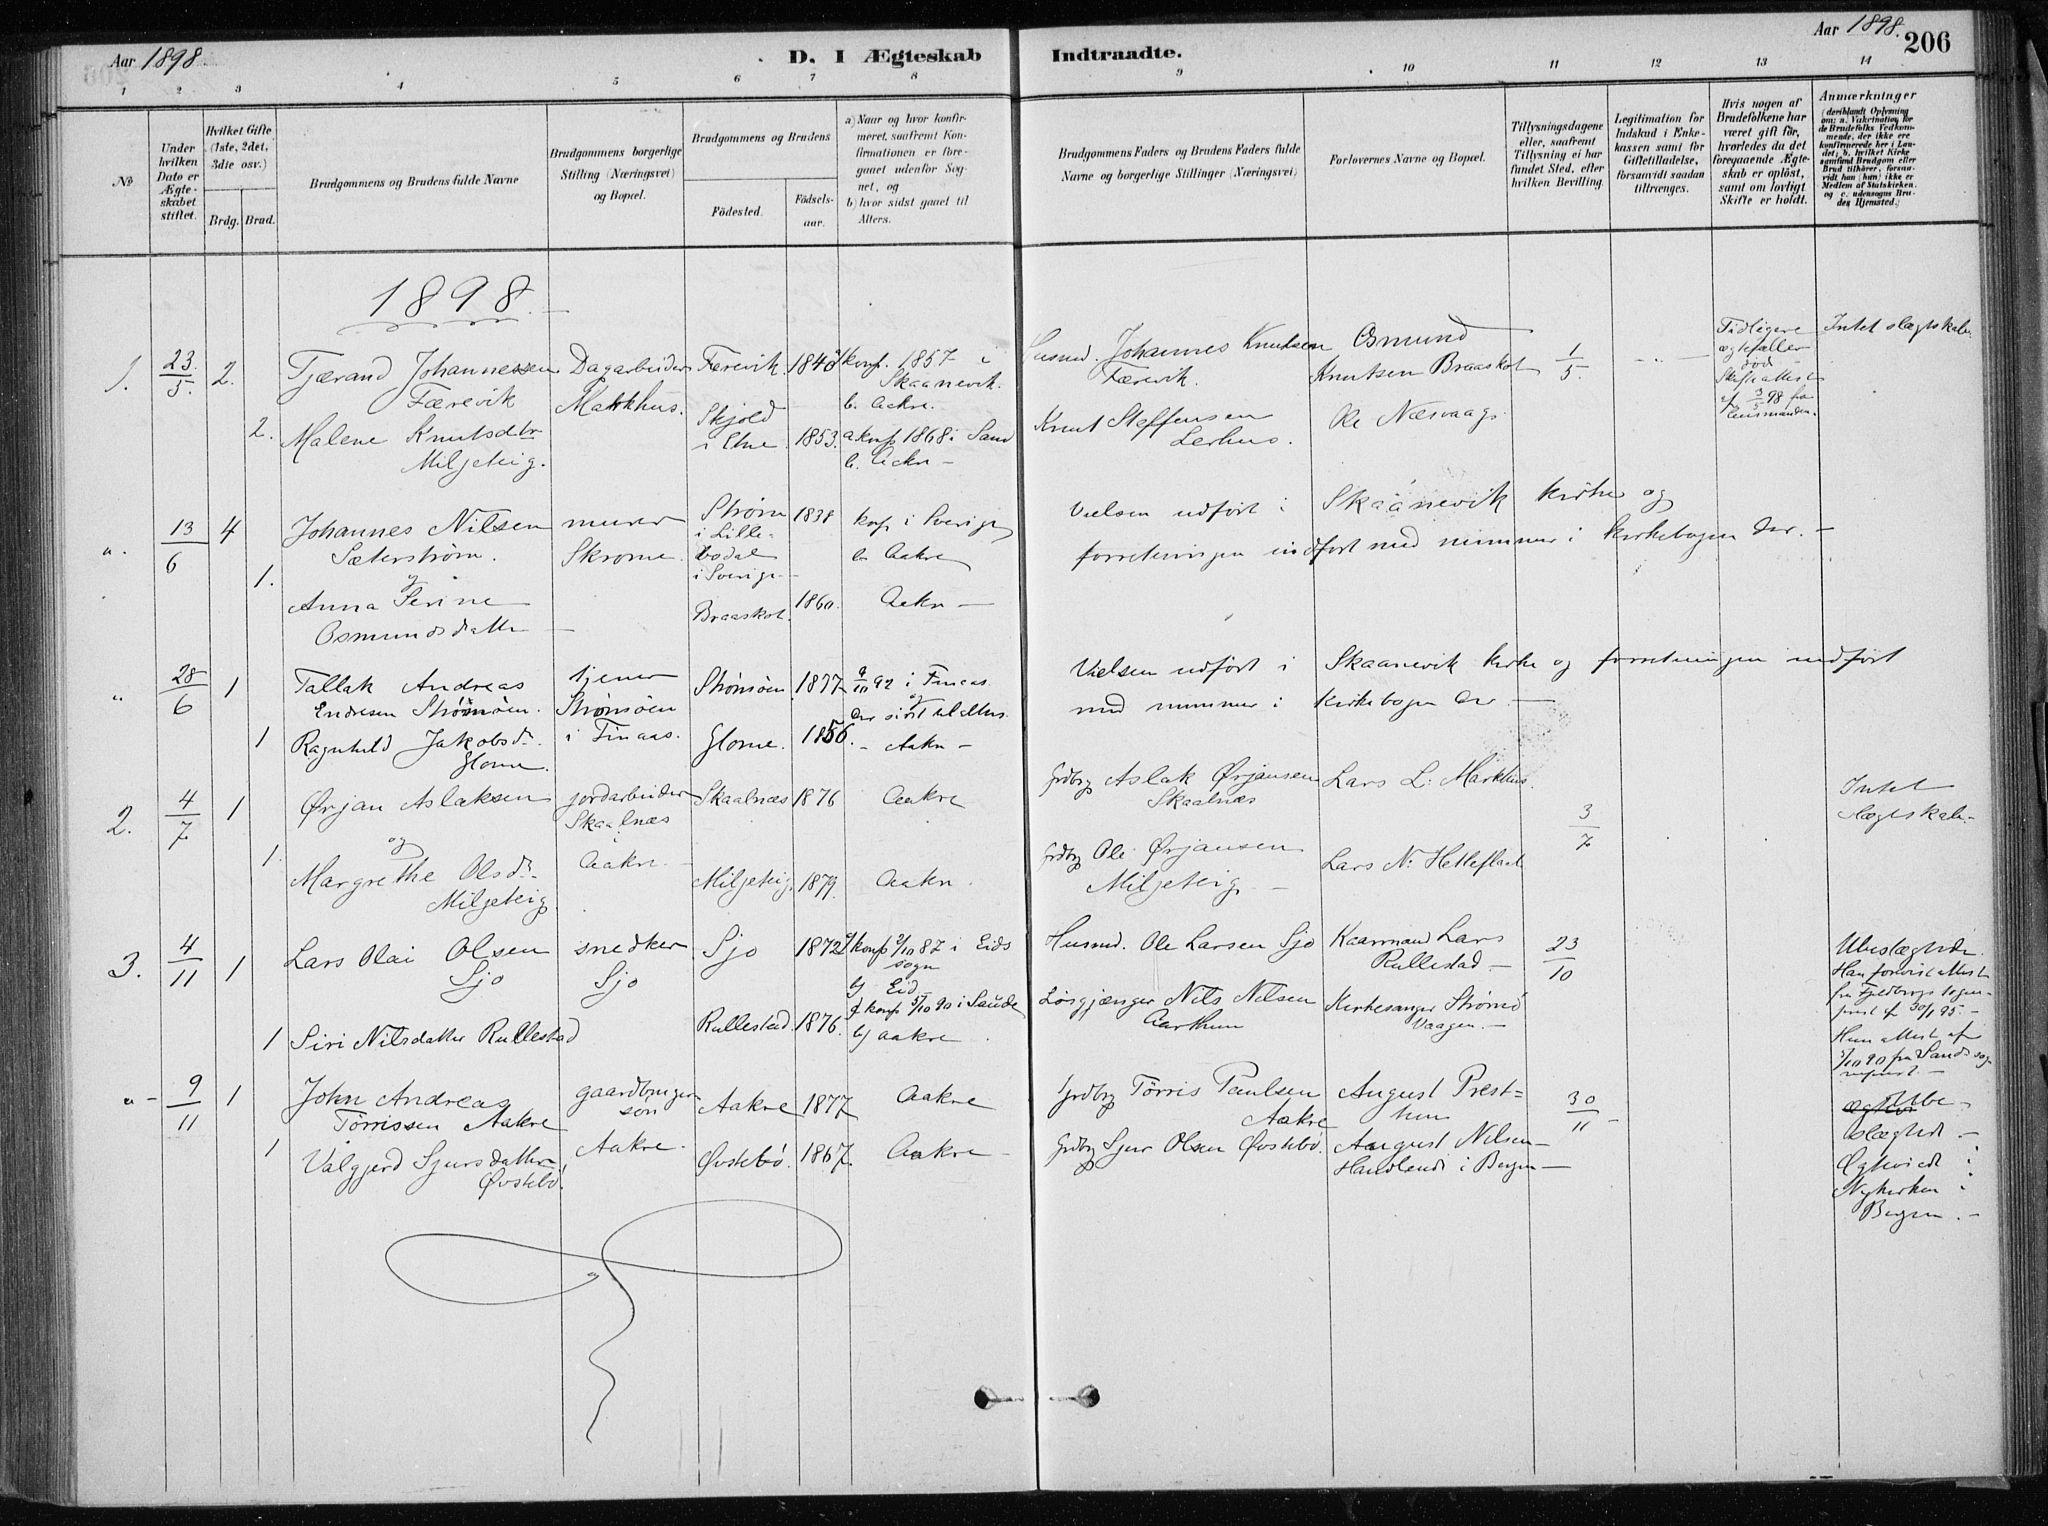 Aar 1898.
D. I Ægteskab Indtraadte.
Aar 1898.
206
1 2 3 4 5 6 7 8 9 10 11 12 13 14
No
Under hvilken Dato er Ægteskabet stiftet.
Hvilket Gifte (1ste, 2det, 3die osv.)
Brdg. Brud.
Brudgommens og Brudens fulde Navne
Brudgommens borgerlige Stilling (Næringsvei) og Bopæl.
Brudgommens og Brudens
Födested.
Födselsaar.
a) Naar og hvor konfirmeret, saafremt Konfirmationen er foregaaet udenfor Sognet, og
b) hvor sidst gaaet til Alters.
Brudgommens Faders og Brudens Faders fulde Navne og borgerlige Stillinger (Næringsvei)
Forlovernes Navne og Bopæl.
Tillysningsdagene eller, saafremt Tillysning ei har fundet Sted, efter hvilken Bevilling.
Legitimation for Indskud i Enkekassen samt for Giftetilladelse, forsaavidt saadan tiltrænges.
Hvis nogen af Brudefolkene har været gift för, hvorledes da det foregaaende Ægteskab er oplöst, samt om lovligt Skifte er holdt.
Anmærkninger
(deriblandt Oplysning om: a. Vakcination for de Brudefolks Vedkommende, der ikke ere konfirmerede her i Landet; b. hvilket Kirkesamfund Brudgom eller Brud tilhörer, forsaavidt han (hun) ikke er Medlem af Statskirken, og c. udensogns Brudes Hjemsted.)
1898.
1. 23/5. 2. Tjærand Johannessen Færevik
Dagarbeider Markhus.
Færevik. 1840 konf. 1857 i Skaanevik. b. Aakre.
Husmd. Johannes Knudsen Færevik.
Osmund Knutsen Braaskot
1/5.
Tidligere ægtefæller död Skifteattest af 3/5 98 fra Lensmanden.
Intet slægtskab.
2. Malene Knutsdtr Miljeteig.
Skjold i Etne. 1853. a konf 1868 i Sand b. Aakre –
Knut Steffensen Lerhus.
Ole Næsvaag.
" 13/6 4 Johannes Nilsen Sæterström.
murer Skrome.
Ström i Lillebodal i Sverige
1838 konf i Sverige b. Aakre
Vielsen udført i Skaanevik kirke og
forretningen indført med nummer i kirkebogen der. –
1. og Anna Serine Osmundsdatter –
Braaskot. 1860. Aakre –
" 28/6 1 Tallak Andreas Endresen Strömsöen.
tjener Strönsöen i Finaas.
Strönsöen 1877 9/10 92 i Finaas og der sidst til alters.
Vielsen udført i Skaanevik kirke og forretningen indført
med nummer i kirkebogen der –
1 Ragnhild Jakobsd. Glome.
Glome. 1856. – Aakre –
2. 4/7 1 Ørjan Aslaksen
jordarbeider Skaalnæs Aakre –
Skaalnæs 1876 Aakre
Grdbrg Aslak Ørjansen Skaalnæs
Lars L. Markhus.
3/7
Intet slægtskab. –
1. og Margrethe Olsdr. Miljeteig
Miljeteig 1879. Aakre.
Grdbrg Ole Ørjansen Miljeteig –
Lars N. Hetleflaat
3. 4/11 1 Lars Olai Olsen Sjo
snedker Sjo
Sjo 1872 konf 2/10 87 i Eids sogn b) Eid –
Husmd. Ole Larsen Sjo
Kaarmand Lars Rullestad –
23/10
Ubeslægtede.
Han forevist attest fra Fjeldbergs sogneprest af 30/1 95. –
Hun attest af 5/10 90 fra Sands sogneprest. –
1 Siri Nilsdatter Rullestad
Rullestad 1876. konf 5/10 90 i Saude b) Aakre
Løsgjænger Nils Nilsen Aarthun
Kirkesanger Strömö Vaagen. –
" – 9/11 1 John Andreas Törrissen Aakre
gaardbrugersön Aakre.
Aakre 1877. Aakre
Grdbrg Törris Paulsen Aakre
August Prest=hun
30/11 –
Ubeslægtede –
Ægteviede i Nykirken i Bergen. –
1 Valgjerd Sjursdatter Øvstebö.
Øvstebö. 1867. Aakre –
Grdbrg Sjur Olsen Øvstebö.
August Nilsen – Handlende i Bergen –